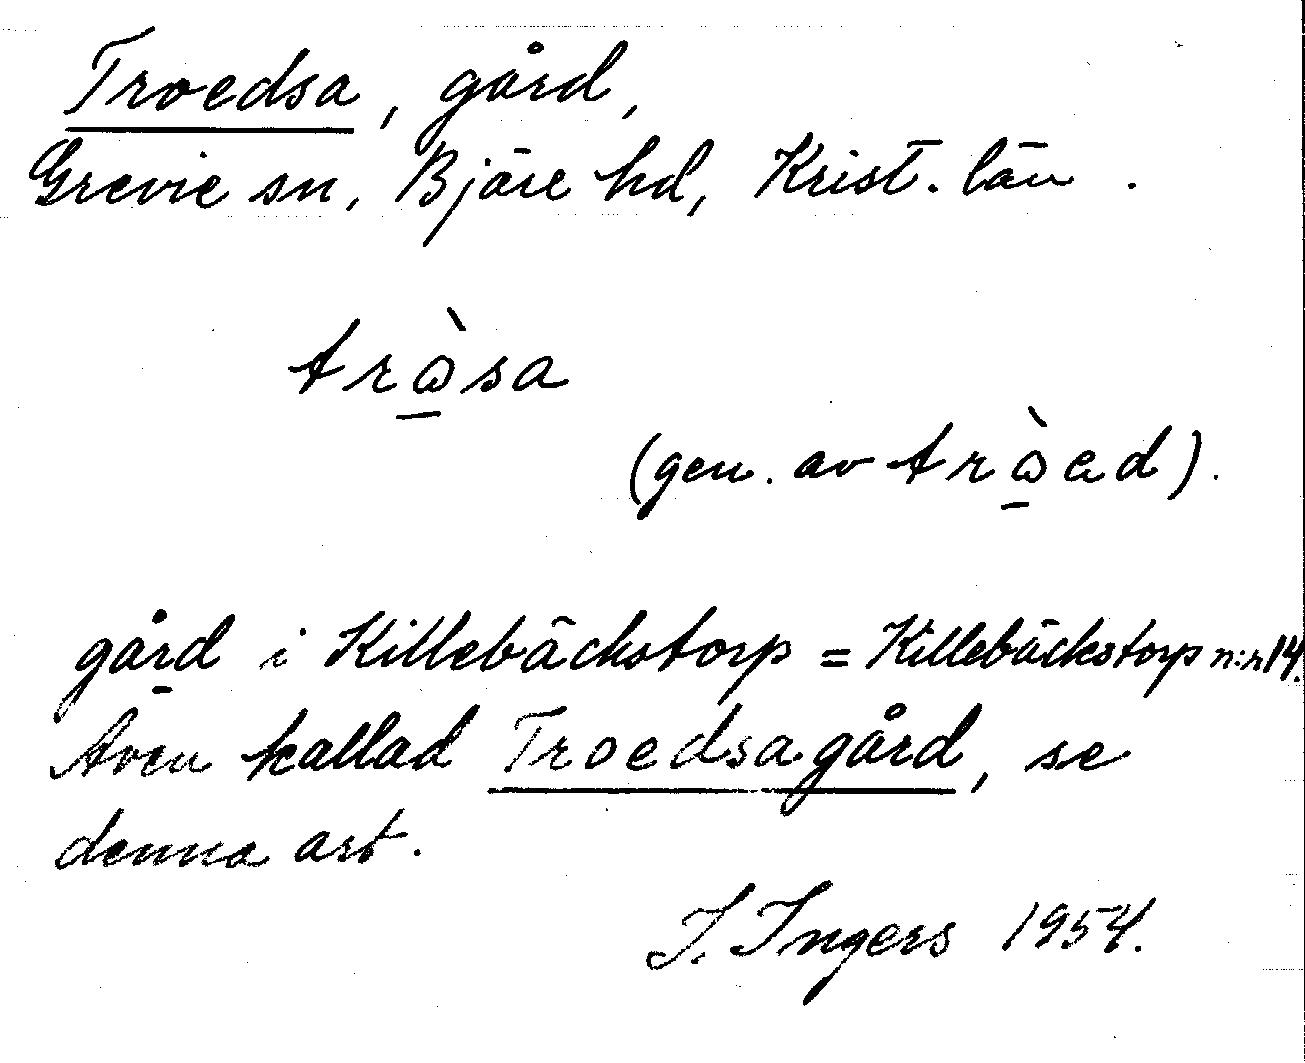 Troedsa, gård,
Grevie sn, Bjäre hd, Krist. län.
trὼ̱sa
(gen. av trὼ̱ed).
gård i Killebäckstorp = Killebäckstorp n:r 14.
Även kallad Troedsagård, se
denna art.
I. Ingers 1954.